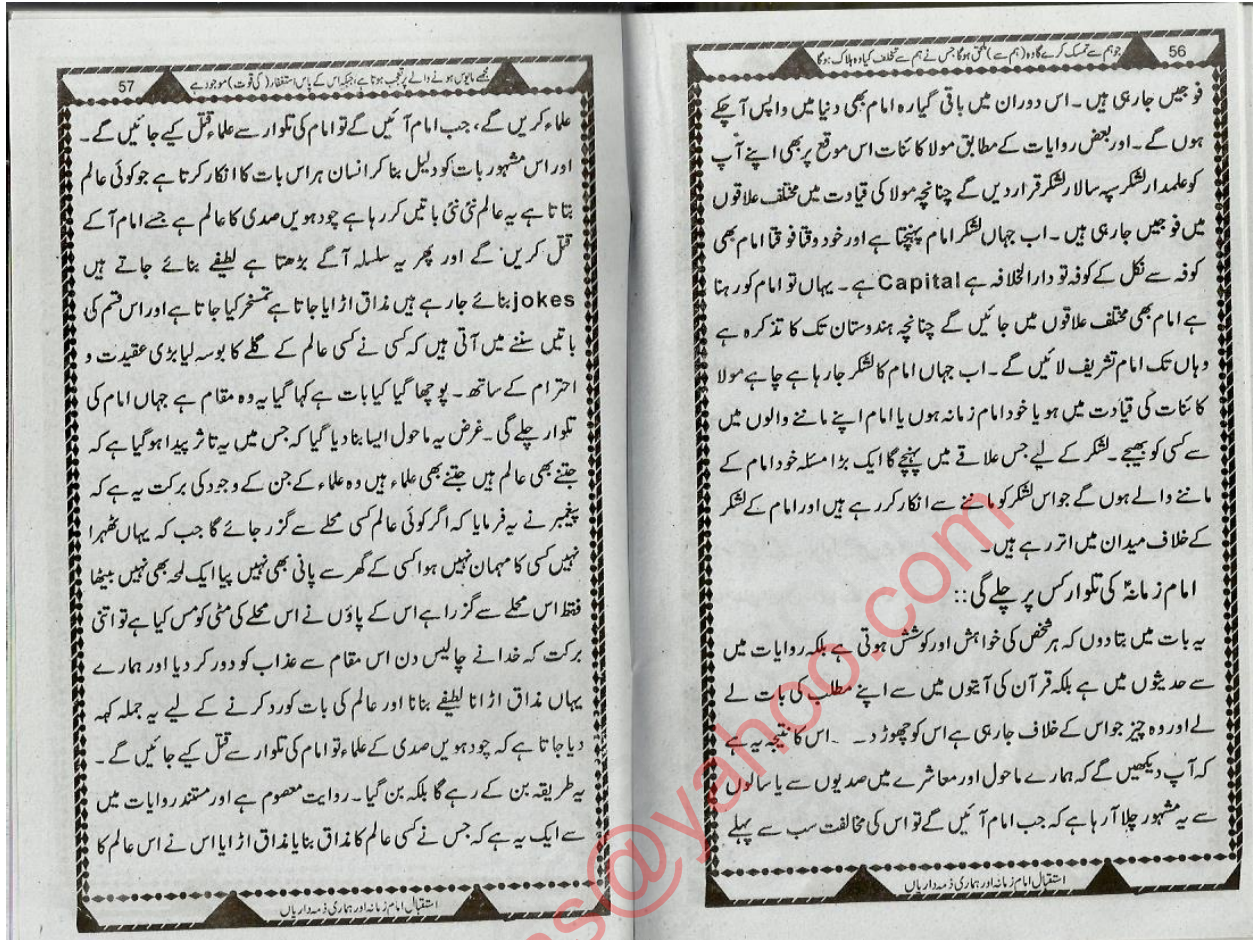 56
جو ہم سے تمسک کرے گا وہ (ہم سے) ملحق ہوگا جس نے ہم سے تخلف کیا وہ ہلاک ہوگا
فوجیں جارہی ہیں۔ اس دوران میں باقی گیارہ امام بھی دنیا میں واپس آچکے
ہوں گے۔ اور بعض روایات کے مطابق مولا کائنات اس موقع پر بھی اپنے آپ
کو علمدار لشکر سپہ سالار لشکر قرار دیں گے چنانچہ مولا کی قیادت میں مختلف علاقوں
میں فوجیں جارہی ہیں۔ اب جہاں لشکر امام پہنچتا ہے اور خود وقتا فوقتا امام بھی
کوفہ سے نکل کے کوفہ تو دارالخلافہ ہے Capital ہے۔ یہاں تو امام کو رہنا
ہے امام بھی مختلف علاقوں میں جائیں گے چنانچہ ہندوستان تک کا تذکرہ ہے
وہاں تک امام تشریف لائیں گے۔ اب جہاں امام کا لشکر جارہا ہے چاہے مولا
کائنات کی قیادت میں ہو یا خود امام زمانہ ہوں یا امام اپنے ماننے والوں میں
سے کسی کو بھیجے۔ لشکر کے لیے جس علاقے میں پہنچے گا ایک بڑا مسئلہ خود امام کے
ماننے والے ہوں گے جو اس لشکر کو ماننے سے انکار کررہے ہیں اور امام کے لشکر
کے خلاف میدان میں اتر رہے ہیں۔
امام زمانہؑ کی تلوار کس پر چلے گی::
یہ بات میں بتادوں کہ ہر شخص کی خواہش اور کوشش ہوتی ہے بلکہ روایات میں
سے حدیثوں میں ہے بلکہ قرآن کی آیتوں میں سے اپنے مطلب کی بات لے
لے اور وہ چیز جو اس کے خلاف جارہی ہے اس کو چھوڑ د۔ اس کا نتیجہ یہ ہے
کہ آپ دیکھیں گے کہ ہمارے ماحول اور معاشرے میں صدیوں سے یا سالوں
سے یہ مشہور چلا آرہا ہے کہ جب امام آئیں گے تو اس کی مخالفت سب سے پہلے
استقبال امام زمانہ اور ہماری ذمہ داریاں
57
مجھے مایوس ہونے والے پر تعجب ہوتا ہے، جبکہ اس کے پاس استغفار (کی قوت) موجود ہے
علماء کریں گے، جب امام آئیں گے تو امام کی تلوار سے علماء قتل کیے جائیں گے۔
اور اس مشہور بات کو دلیل بنا کر انسان ہر اس بات کا انکار کرتا ہے جو کوئی عالم
بتاتا ہے یہ عالم نئی نئی باتیں کررہا ہے چودہویں صدی کا عالم ہے جسے امام آکے
قتل کریں گے اور پھر یہ سلسلہ آگے بڑھتا ہے لطیفے بنائے جاتے ہیں
jokes بنائے جارہے ہیں مذاق اڑایا جاتا ہے تمسخر کیا جاتا ہے اور اس قسم کی
باتیں سننے میں آتی ہیں کہ کسی نے کسی عالم کے گلے کا بوسہ لیا بڑی عقیدت و
احترام کے ساتھ۔ پوچھا گیا کیا بات ہے کہا گیا یہ وہ مقام ہے جہاں امام کی
تلوار چلے گی۔ غرض یہ ماحول ایسا بنادیا گیا کہ جس میں یہ تاثر پیدا ہوگیا ہے کہ
جتنے بھی عالم ہیں جتنے بھی علماء ہیں وہ علماء کے جن کے وجود کی برکت یہ ہے کہ
پیغمبر نے یہ فرمایا کہ اگر کوئی عالم کسی محلے سے گزر جائے گا جب کہ یہاں ٹھہرا
نہیں کسی کا مہمان نہیں ہوا کسی کے گھر سے پانی بھی نہیں پیا ایک لمحہ بھی نہیں بیٹھا
فقط اس محلے سے گزرا ہے اس کے پاؤں نے اس محلے کی مٹی کو مس کیا ہے تو اتنی
برکت کہ خدا نے چالیس دن اس مقام سے عذاب کو دور کردیا اور ہمارے
یہاں مذاق اڑانا لطیفے بنانا اور عالم کی بات کو رد کرنے کے لیے یہ جملہ کہہ
دیا جاتا ہے کہ چودہویں صدی کے علماء تو امام کی تلوار سے قتل کیے جائیں گے۔
یہ طریقہ بن کے رہے گا بلکہ بن گیا۔ روایت معصوم ہے اور مستند روایات میں
سے ایک یہ ہے کہ جس نے کسی عالم کا مذاق بنایا مذاق اڑایا اس نے اس عالم کا
استقبال امام زمانہ اور ہماری ذمہ داریاں
s@yahoo.com